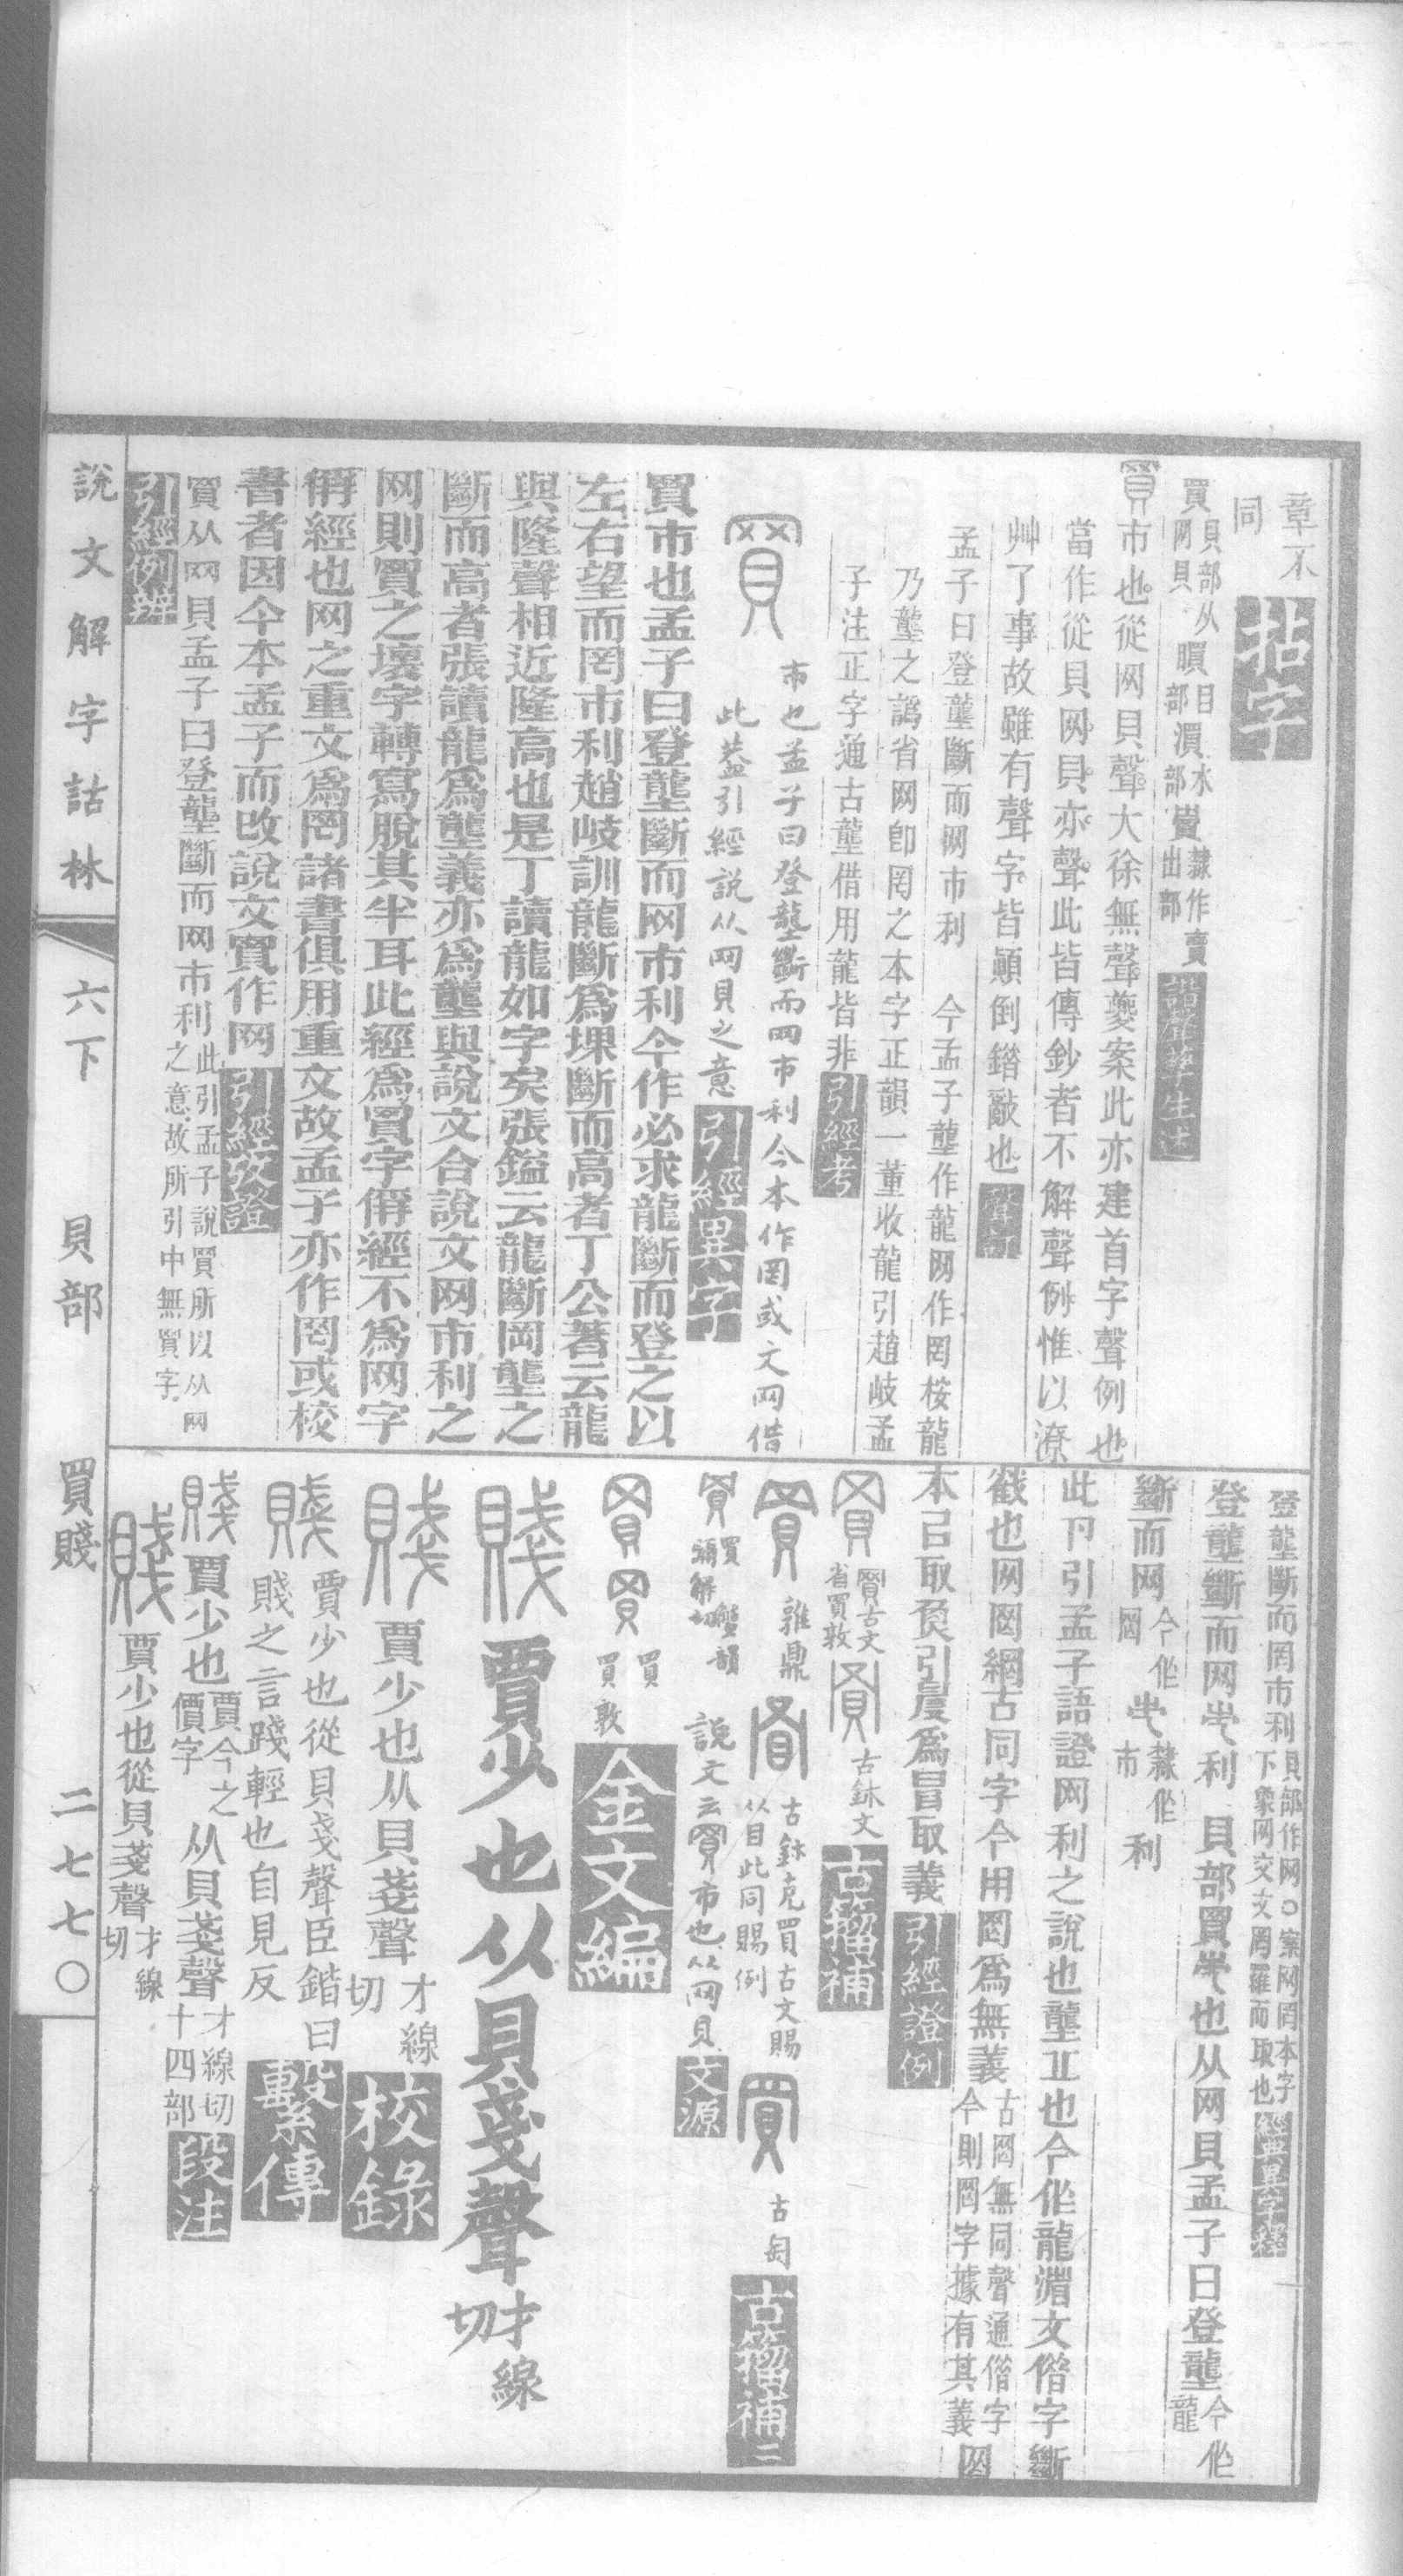 章不
同
拈字
買貝部从网貝
䁲目部
潩水部
賣隸作賣出部
諧聲孳生述
買市也從网貝聲大徐無聲夔案此亦建首字聲例也
當作從貝网貝亦聲此皆傳鈔者不解聲例惟以潦
艸了事故雖有聲字皆顚倒䥫敲也
聲訂
孟子曰登壟斷而网市利　今孟子壟作龍网作罔桉龍
乃壟之譌省网卽罔之本字正韻一董收龍引趙岐孟
子注正字通古壟借用龍皆非
引經考
市也孟子曰登壟斷而网市利今本作罔或文网借
此葢引經說从网貝之意
引經異字
買市也孟子曰登壟斷而网市利今作必求龍斷而登之以
左右望而罔市利趙岐訓龍斷爲堁斷而高者丁公著云龍
與隆聲相近隆高也是丁讀龍如字矣張鎰云龍斷岡壟之
斷而高者張讀龍爲壟義亦爲壟與說文合說文网市利之
网則買之壞字轉寫脫其半耳此經爲買字偁經不爲网字
偁經也网之重文爲罔諸書俱用重文故孟子亦作罔或校
書者因今本孟子而改說文買作网
引經攷證
買从网貝孟子曰登壟斷而网市利此引孟子說買所以从网之意故所引中無買字
引經例辨
登壟斷而罔市利貝部作网○案网罔本字下象网交文罔羅而取也
經典異字釋
登壟斷而网市利　貝部買市也从网貝孟子曰登壟今作龍
斷而网今作罔市隸作市利
此引孟子語證网利之說也壟丘也今作龍渻文偕字斷
截也网罔網古同字今用罔爲無義古网無同聲通偕字今則罔字據有其義网
本㠯取魚引爲冒取義
引經證例
買古文省買敦
古鉥文
古籀補
雝鼎
古鉥克買古文賜从目此同賜例
古匋
古籀補二
買蟹韻
說文云買市也从网貝
文源
買買敦
金文編
賤賈少也从貝戔聲才線切
賈少也从貝戔聲才線切
校錄
賈少也從貝戔聲臣鍇曰
賤之言踐輕也自見反
繫傳
賈少也賈今之價字从貝戔聲才線切十四部
段注
賈少也從貝戔聲才線切
說文解字詁林
六下　貝部　買賤
二七七〇